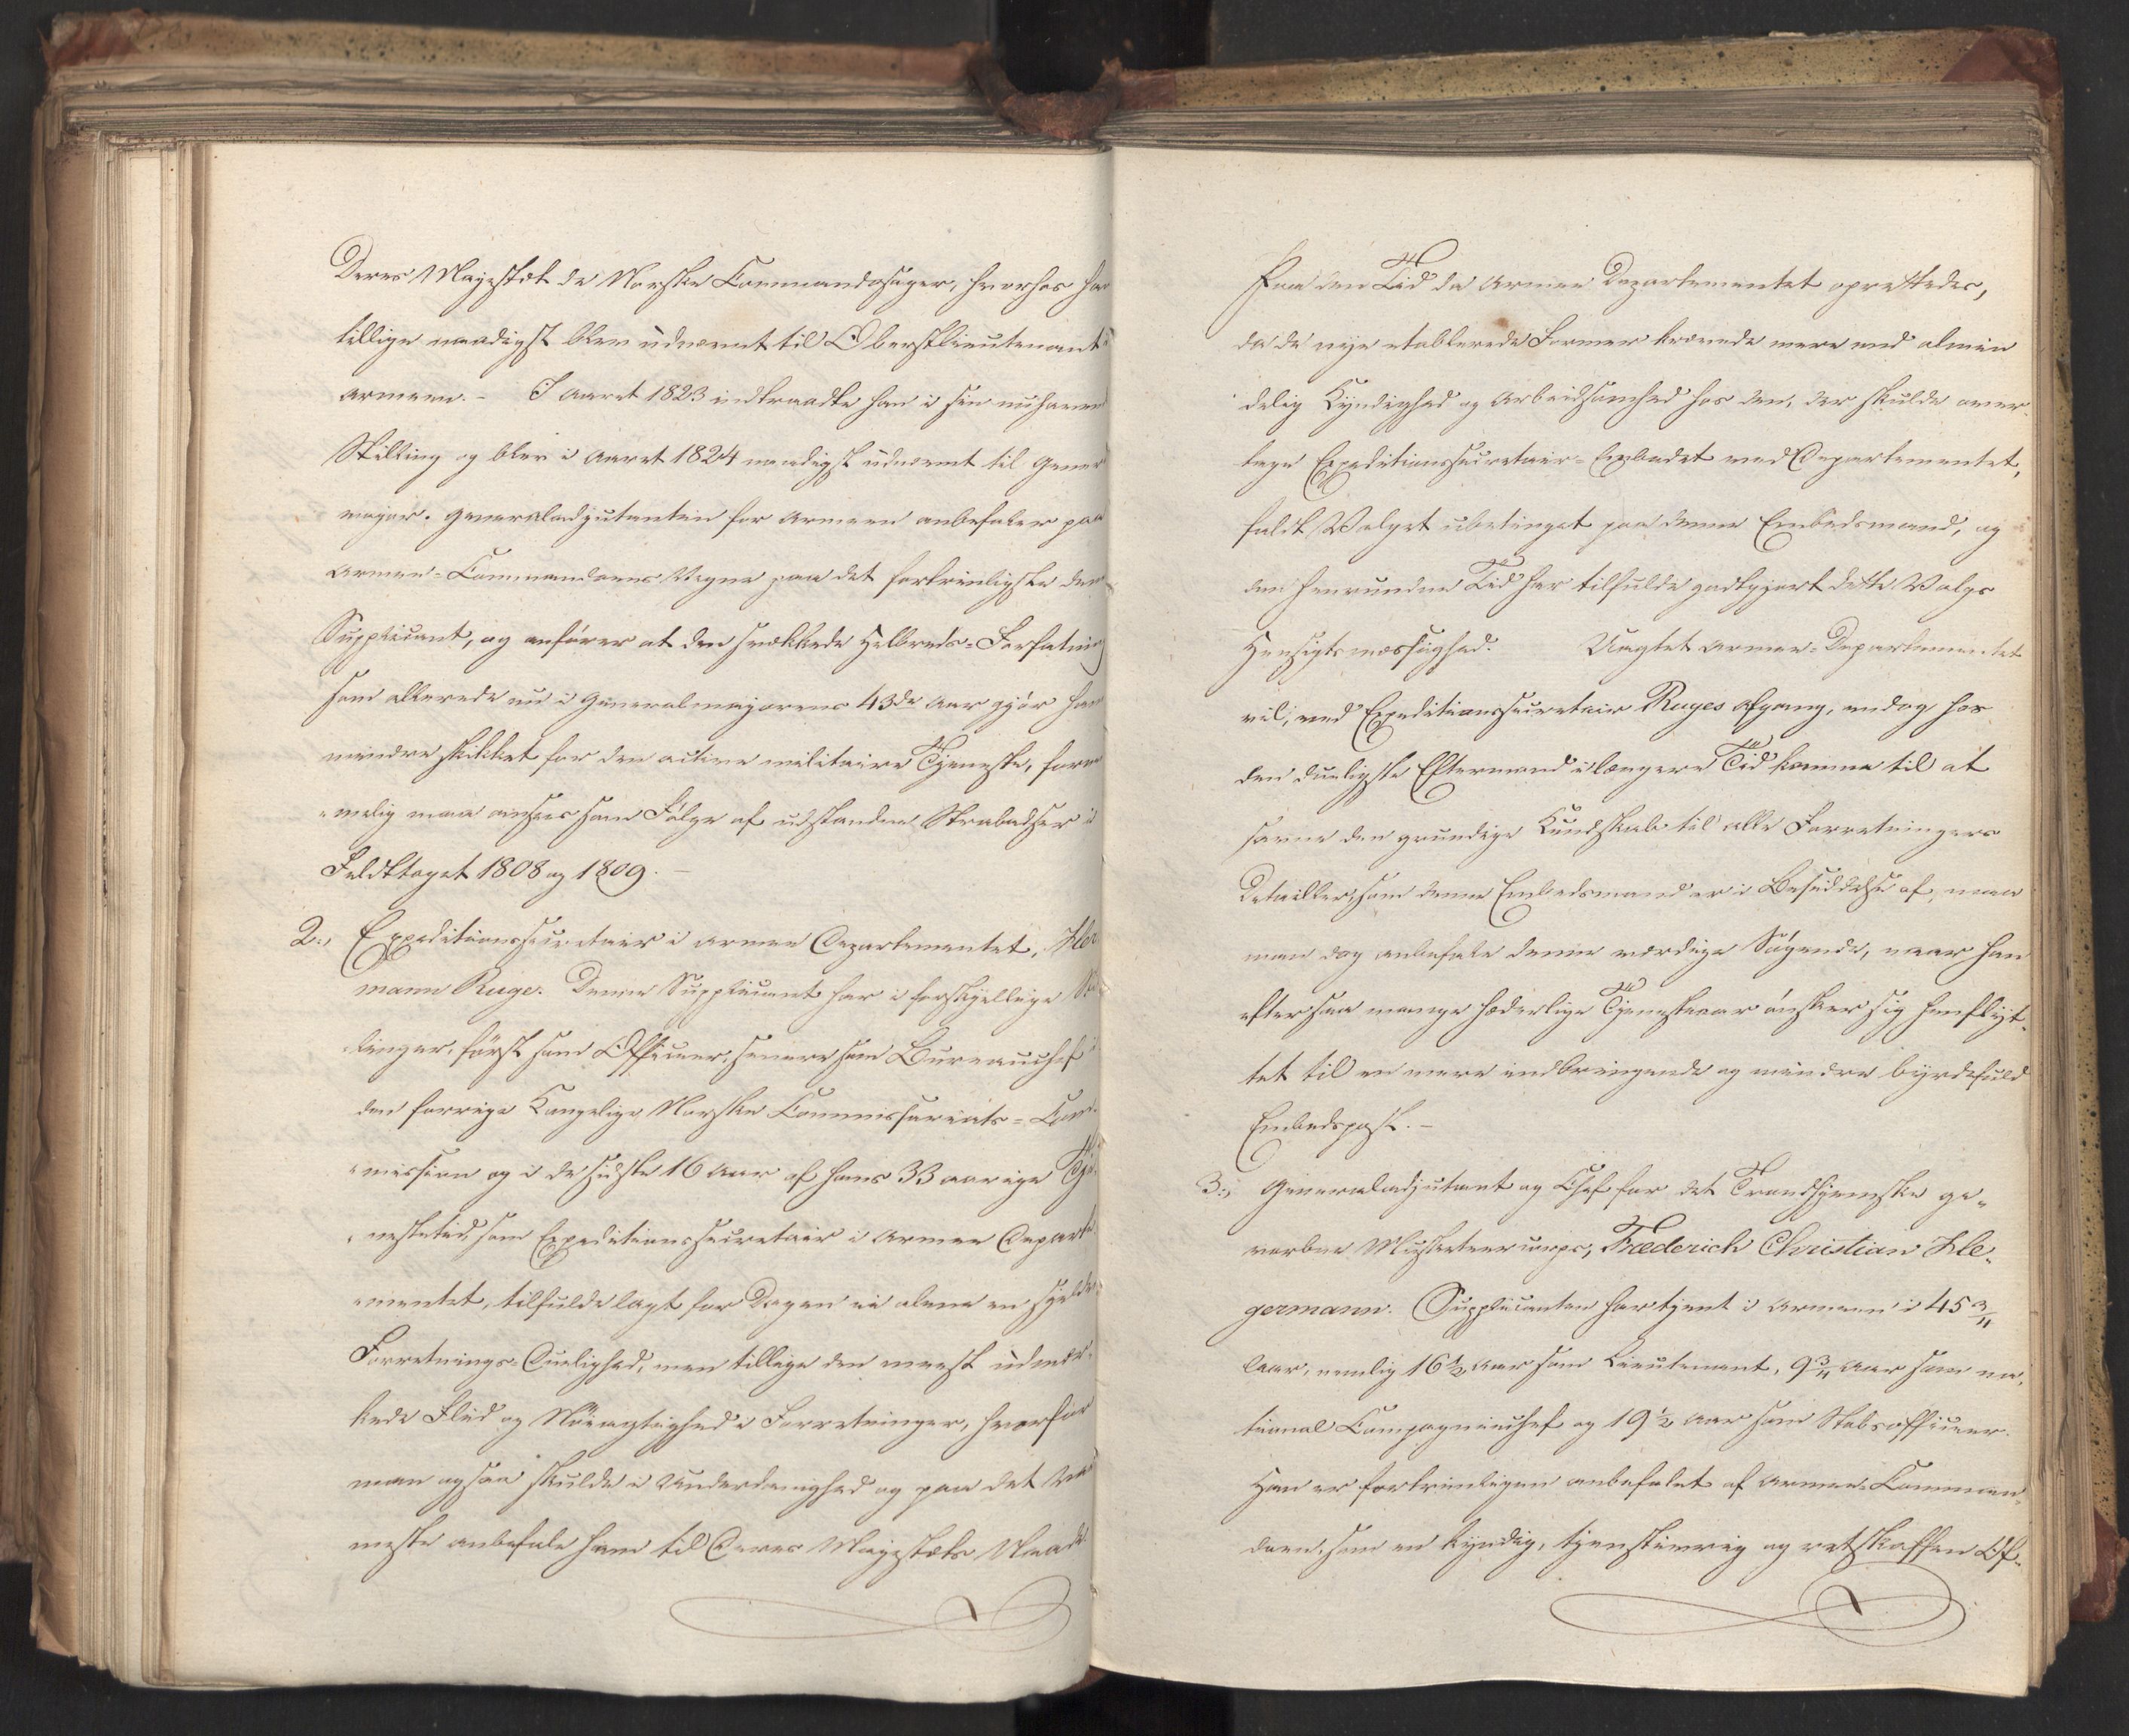 Deres Majestæt de Norske Commandosager, hvorhos han
tillige naadigst blev udnævnt til Oberstlieutenant i
Armeen. – I Aaret 1823 indtraadte han i sin nuhavende
Stilling og blev i Aaret 1824 naadigst udnævnt til General
major. Generaladjutanten for Armeen anbefaler paa
Armee-Commandoens Vegne paa det fortrinligste denne
Supplicant, og anfører at den svækkede Helbreds-Forfatning
som allerede nu i Generalmajorens 43de Aar gjør ham
mindre skikket for den active militaire Tjeneste, forne
melig maa ansees som Følge af udstandne Strabadser i
Feldttoget 1808 og 1809. –
2., Expeditionssecretair i Armee Departementet, Her
mann Ruge. Denne Supplicant har i forskjellige Stil
linger, først som Officeer, senere som Bureauchef i
den forrige Kongelige Norske Commissariats-Com
mission og i de sidste 16 Aar af hans 33 aarige Tje
nestetid, som Expeditionssecretair i Armee Departe
mentet, tilfulde lagt for Dagen ei alene en sjelden
Forretnings-Duelighed, men tillige den meest udmær
kede Flid og Nøiagtighed i Forretninger, hvorfor
man ogsaa skulde i Underdanighed og paa det var
meste anbefale ham til Deres Majestæts Naade
Paa den Tid da Armee Departementet oprettedes,
da de nye etablerede Former krævede mere end almin
delig Kyndighed og Arbeidsomhed hos den, der skulde over
tage Expeditionssecretair-Embedet ved Departementet,
faldt Valget ubetinget paa denne Embedsmand, og
den henrundne Tid har tilfulde godtgjort dette Valgs
Hensigtsmæssighed. Uagtet Armee-Departementet
vil, ved Expeditionssecretair Ruges Afgang, endog hos
den dueligste Eftermand i længere Tid komme til at
savne den grundige Kundskab til alle Forretningers
Detailler, som denne Embedsmand er i Besiddelse af, maa
man dog anbefale denne værdige Søgende, naar han
efter saa mange hæderlige Tjenesteaar ønsker sig henflyt-
tet til en mere indbringende og mindre byrdefuld
Embedspost. –
3., Generaladjutant og Chef for det Trondhjemske ge-
vorbne Musketeercorps, Fræderich Christian He-
germann. Supplicanten har tjent i Armeen i 45 3/11
Aar, nemlig 16 1/2 Aar som Lieutenant, 9 3/11 Aar som na-
tional Compagniechef og 19 1/2 Aar som Stabsofficeer.
Han er fortrinligen anbefalet af Armee-Comman-
doen, som en kyndig, tjenstivrig og retskaffen Of-